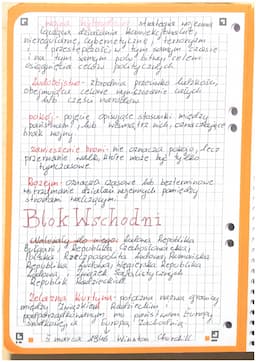 Wojna hybrydowa: strategia wojenna
łącząca działania konwencjonalne,
nieregularne, cybernetyczne, terroryzm
i przestępczość w tym samym czasie
i na tym samym polu bitwy, celem
osiągnięcia celów politycznych.
Ludobójstwo- zbrodnia przeciwko ludzkości,
obejmująca celowe wyniszczanie całych
lub części narodów
pokój- pojęcie opisujące stosunki między
państwami, lub wewnątrz nich, oznaczające
brak wojny
zawieszenie broni- nie oznacza pokoju, lecz
przerwanie walk, które może być tylko
tymczasowe
Rozejm- oznacza czasowe lub bezterminowe
wstrzymanie działań wojennych pomiędzy
stronami walczącymi
Blok Wschodni
Należały do niego: Ludowa Republika
Bułgarii, Republika Czechosłowacka,
Polska Rzeczpospolita Ludowa, Rumuńska
Republika Ludowa, Węgierska Republika
Ludowa, Związek Socjalistycznych
Republik Radzieckich
Żelazna Kurtyna- potoczna nazwa granicy
między Związkiem Radzieckim i
podporządkowanymi mu państwami Europy
Środkowej, a Europą Zachodnią
5 marca 1946 Winston Churchill